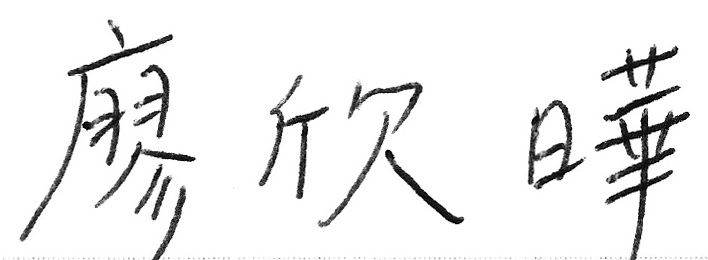 廖欣曄